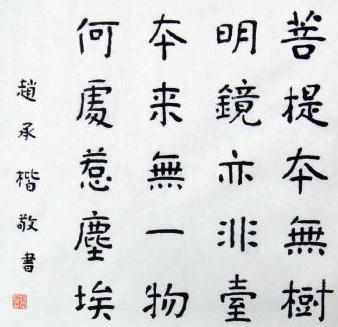 菩提本無樹
明鏡亦非臺
本来無一物
何處惹塵埃
趙承楷敬書